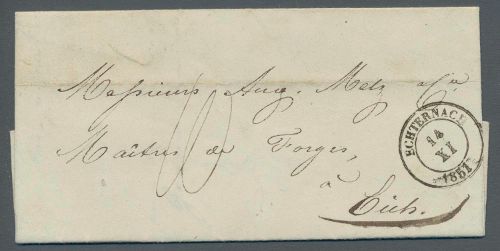 Messieurs Aug. Metz & Cie
Maîtres de Forges,
à
Eich.
ECHTERNACH
14
XI
1851